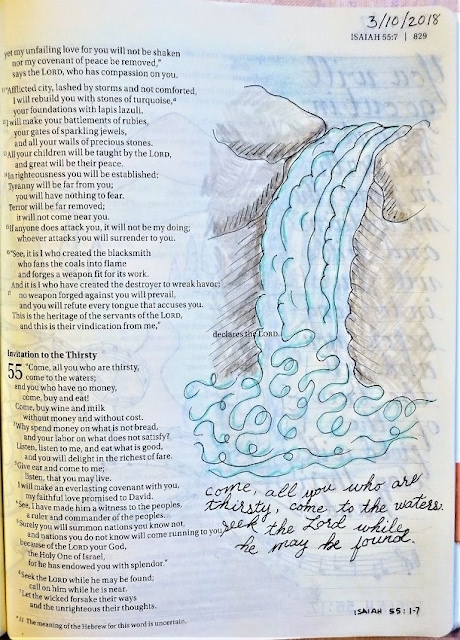 3/10/2018
ISAIAH 55:7 | 829
yet my unfailing love for you will not be shaken
nor my covenant of peace be removed,"
says the LORD, who has compassion on you.
"Afflicted city, lashed by storms and not comforted,
I will rebuild you with stones of turquoise,ᵃ
your foundations with lapis lazuli.
I will make your battlements of rubies,
your gates of sparkling jewels,
and all your walls of precious stones.
All your children will be taught by the LORD,
and great will be their peace.
In righteousness you will be established:
Tyranny will be far from you;
you will have nothing to fear.
Terror will be far removed;
it will not come near you.
If anyone does attack you, it will not be my doing;
whoever attacks you will surrender to you.
"See, it is I who created the blacksmith
who fans the coals into flame
and forges a weapon fit for its work.
And it is I who have created the destroyer to wreak havoc;
no weapon forged against you will prevail,
and you will refute every tongue that accuses you.
This is the heritage of the servants of the LORD,
and this is their vindication from me,"
declares the LORD.
Invitation to the Thirsty
55 "Come, all you who are thirsty,
come to the waters;
and you who have no money,
come, buy and eat!
Come, buy wine and milk
without money and without cost.
Why spend money on what is not bread,
and your labor on what does not satisfy?
Listen, listen to me, and eat what is good,
and you will delight in the richest of fare.
Give ear and come to me;
listen, that you may live.
I will make an everlasting covenant with you,
my faithful love promised to David.
See, I have made him a witness to the peoples,
a ruler and commander of the peoples.
Surely you will summon nations you know not,
and nations you do not know will come running to you,
because of the LORD your God,
the Holy One of Israel,
for he has endowed you with splendor."
Seek the LORD while he may be found;
call on him while he is near.
Let the wicked forsake their ways
and the unrighteous their thoughts.
ᵃ 11 The meaning of the Hebrew for this word is uncertain.
come, all you who are
thirsty, come to the waters.
seek the Lord while
he may be found.
ISAIAH 55:1-7